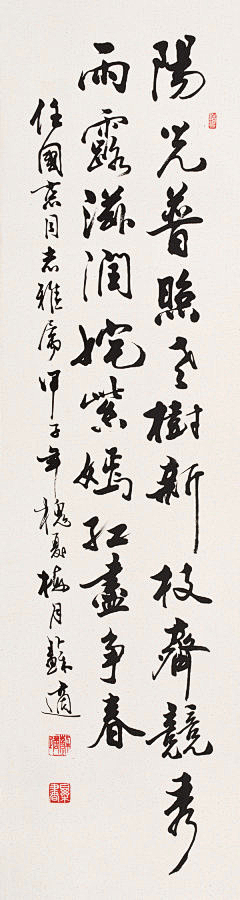 陽光普照老樹新枝齊競秀
雨露滋潤姹紫嫣紅盡爭春
任國章同志雅屬甲子年槐夏梅月蘇適